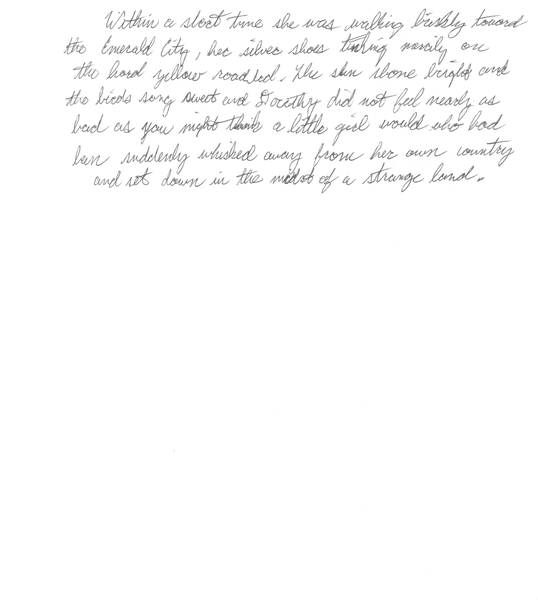 Within a short time she was walking briskly toward
the Emerald City, her silver shoes tinking merrily on
the hard yellow roadbed. The sun shone bright and
the birds song sweet and Dorothy did not feel nearly as
bad as you might think a little girl would who had
been suddenly whisked away from her own country
and set down in the midst of a strange land.